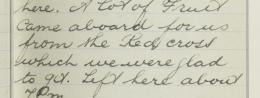 here. A Lot of Fruit
Came aboard for us
from the Red Cross
which we were glad
to get. Left here about
7 Pm.